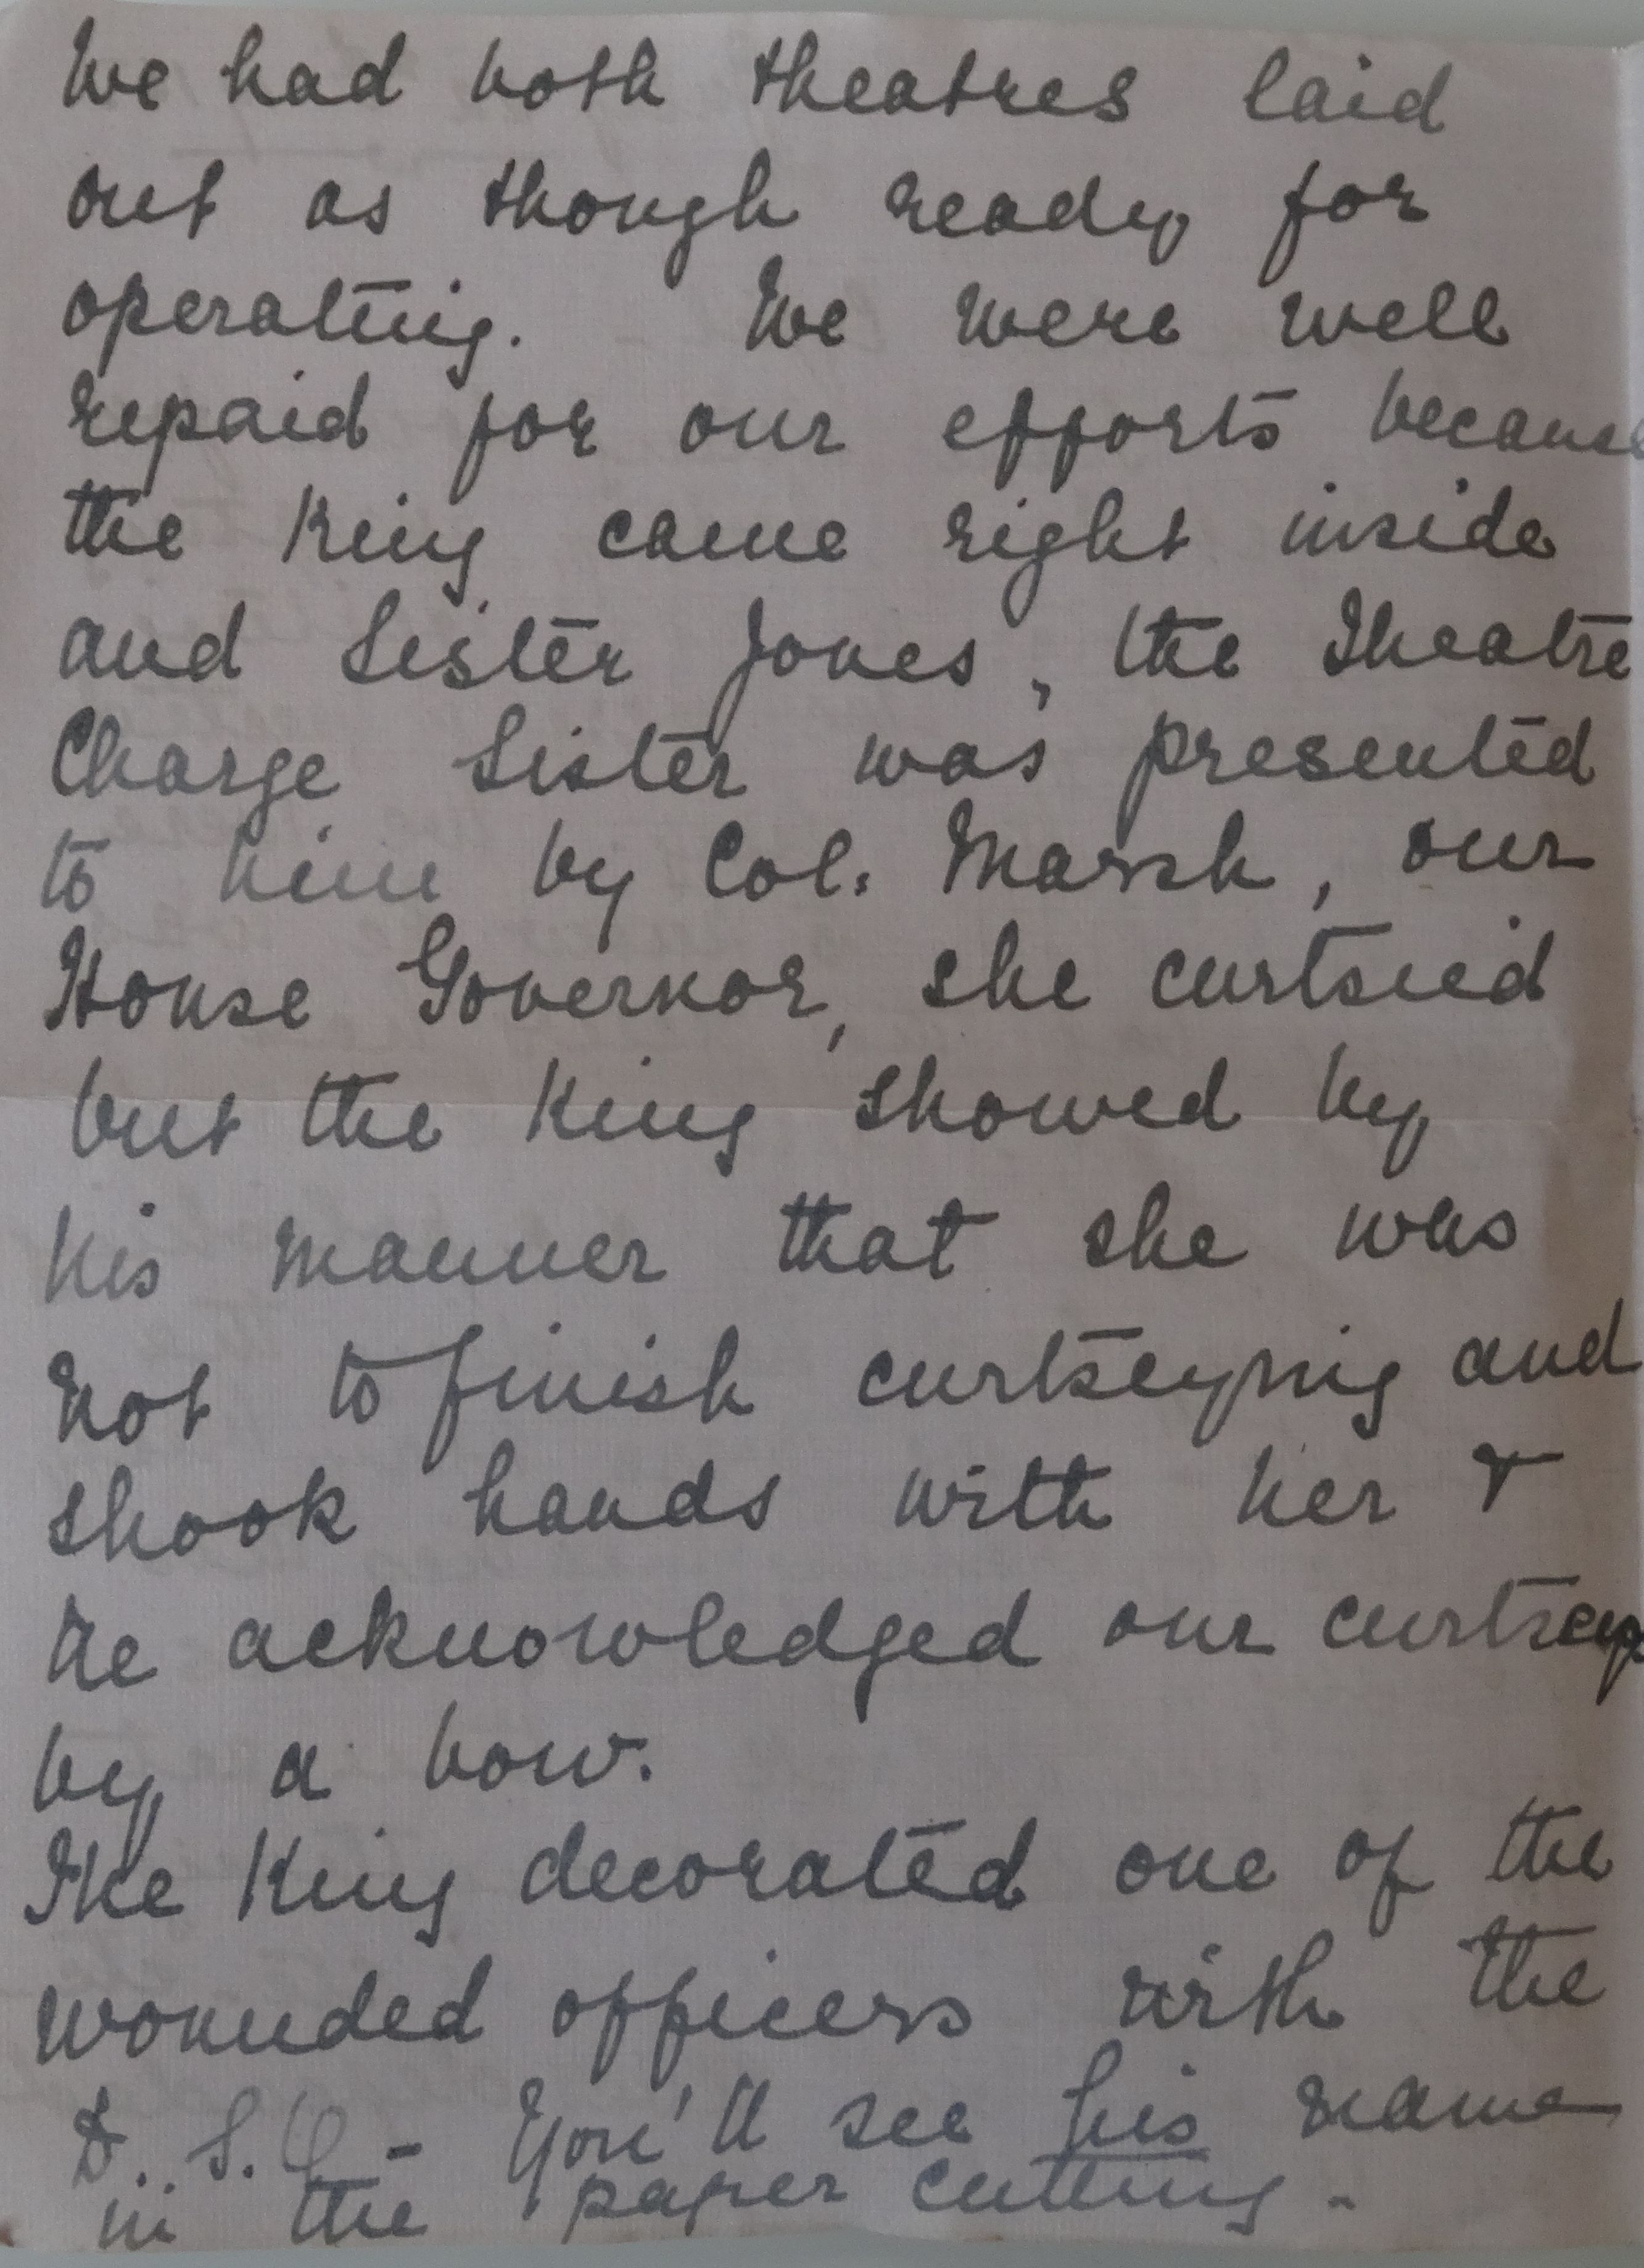 We had both theatres laid
out as though ready for
operating. We were well
repaid for our efforts because
the King came right inside
and Sister Jones, the Theatre
Charge Sister was presented
to him by Col. Marsh, our
House Governor, she curtsied
but the King showed by
his manner that she was
not to finish curtseying and
shook hands with her &
he acknowledged our curtsey
by a bow.
The King decorated one of the
wounded officers with the
D.S.O - You'll see his name
in the paper cutting -